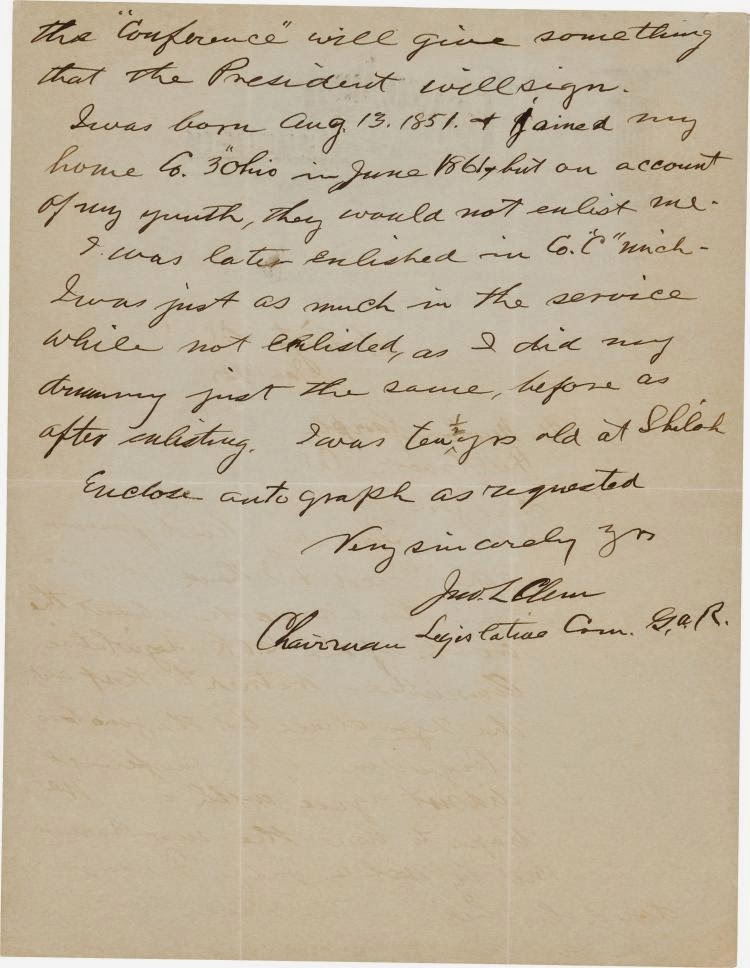 the "Conference" will give something
that the President will sign.
I was born Aug. 13. 1851. & joined my
home Co. 3" Ohio in June 1861, but on account
of my youth, they would not enlist me.
I was later enlished in Co. "C" Mich -
I was just as much in the service
while not enlisted, as I did my
drummy just the same, before as
after enlisting. I was ten ½ yrs old at Shiloh
Enclose autograph as requested
Very sincerely yrs
Jno. L Clem
Chairman Legislative Com. G.a.R.